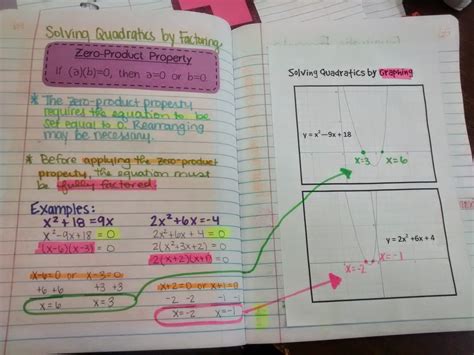 Solving Quadratics by Factoring
Zero-Product Property
If (a)(b)=0, then a=0 or b=0.
* The zero-product property
requires the equation to be
set equal to 0. Rearranging
may be necessary.
* Before applying the zero-product
property, the equation must
be fully factored.
Examples:
x²+18=9x
x²-9x+18=0
(x-6)(x-3)=0
x-6=0 or x-3=0
+6 +6 +3 +3
x=6 x=3
2x²+6x=-4
2x²+6x+4=0
2(x²+3x+2)=0
2(x+2)(x+1)=0
x+2=0 or x+1=0
-2 -2 -1 -1
x=-2 x=-1
Solving Quadratics by Graphing
y = x² – 9x + 18
x=3 x=6
y = 2x² + 6x + 4
x=-2 x=-1